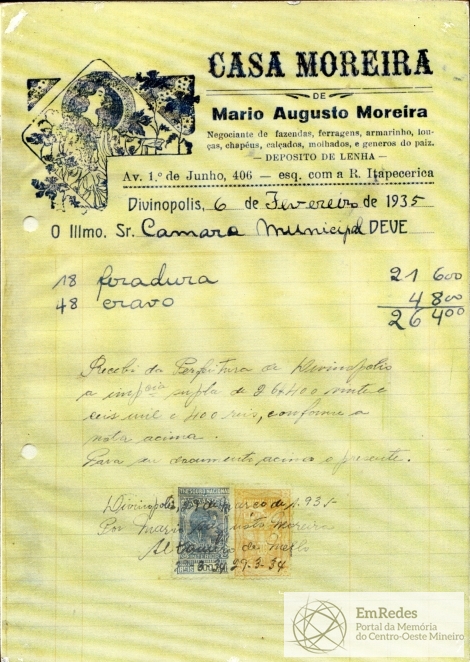 CASA MOREIRA
DE
Mario Augusto Moreira
Negociante de fazendas, ferragens, armarinho, lou-
ças, chapéus, calçados, molhados, e generos do paiz.
— DEPOSITO DE LENHA —
Av. 1.º de Junho, 406 — esq. com a R. Itapecerica
Divinopolis, 6 de Fevereiro de 1935
O Illmo. Sr. Camara Municipal DEVE
18 foradura 21 600
48 cravo 4 800
26 400
Recebi da Perfeitura de Divinopolis
a impcia supla de 26$400 vinte e
seis mil e 400 reis, conforme a
nota acima.
Para seu documento acimo o presente.
THESOURO NACIONAL
Divinopolis, 29 de Março de 1.935
Por Mario Augusto Moreira
de Mello
29-3-34
EmRedes
Portal da Memória
do Centro-Oeste Mineiro